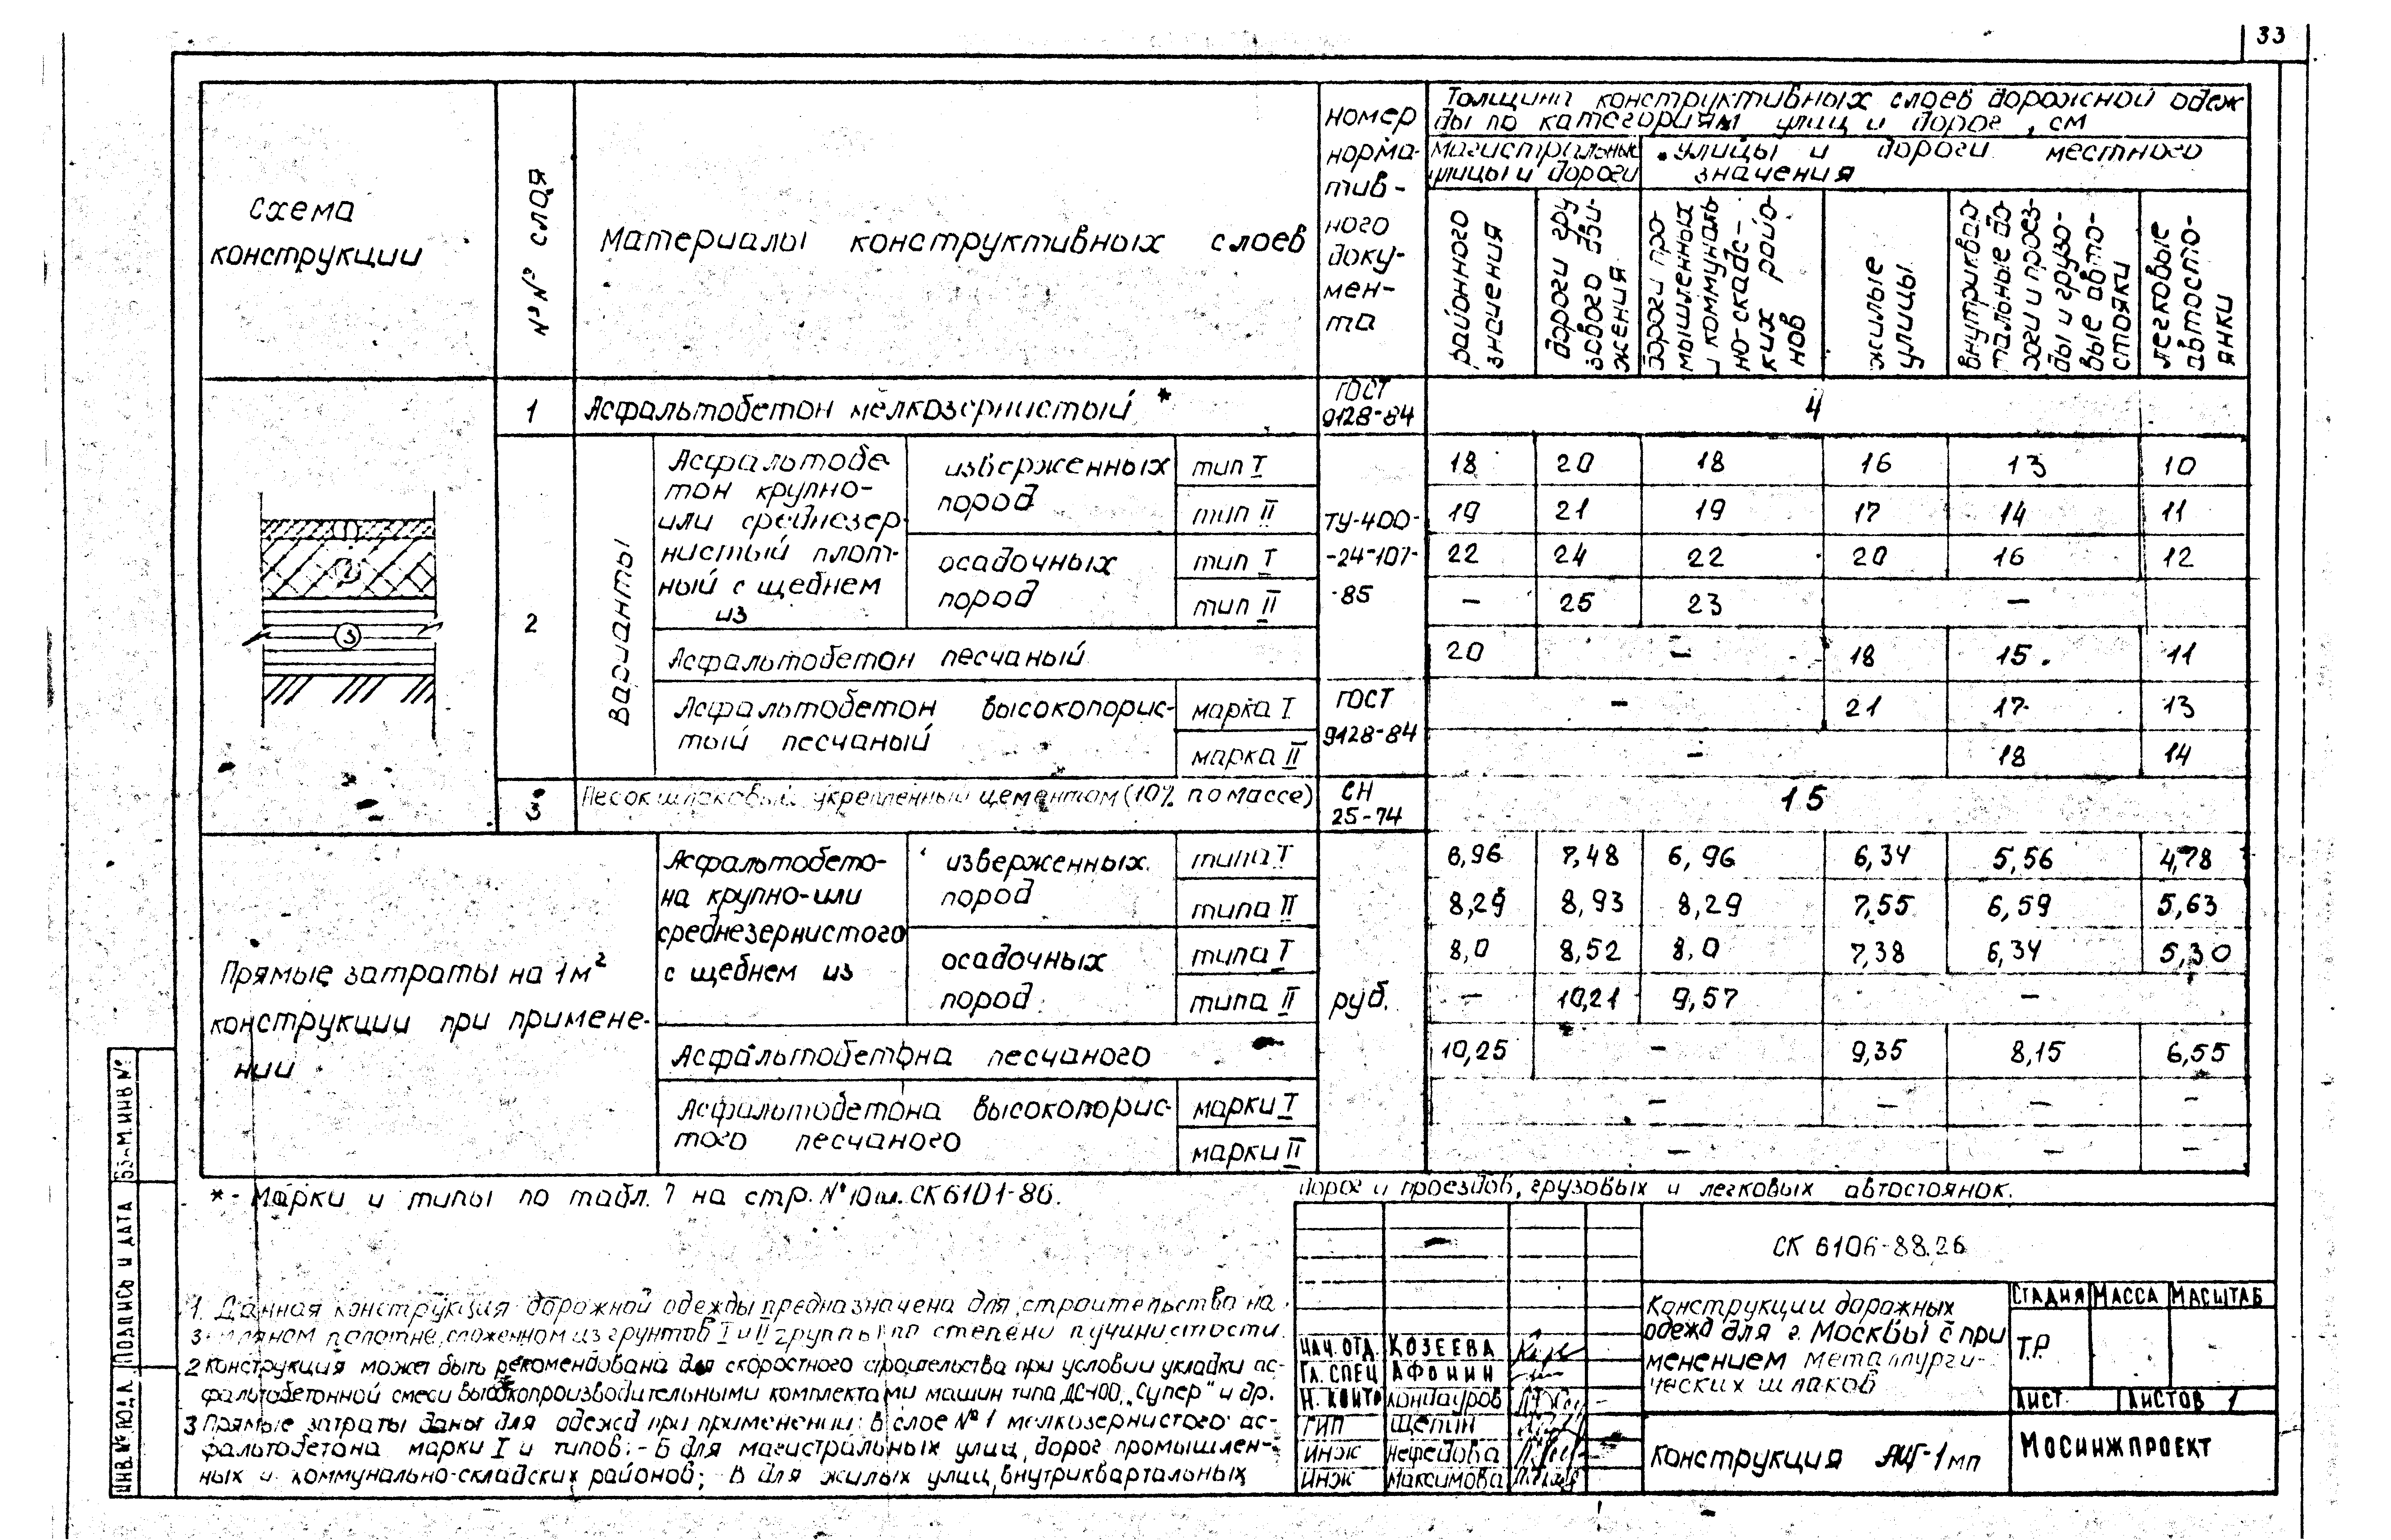 33
схема
конструкции
№№ слоя
Материалы конструктивных слоев
номер
норма-
тив-
ного
доку-
мен-
та
Толщина конструктивных слоев дорожной одеж
ды по категориям улиц и дорог, см
магистральные
улицы и дороги
улицы и дороги местного
значения
районного
значения
дороги гру
зового дви-
жения
дороги про-
мышленных
и коммуналь
но-скадс-
ких райо-
нов
жилые
улицы
внутриквар
тальные до-
роги и проез-
ды и грузо-
вые авто-
стояки
легковые
автосто-
янки
1 Асфальтобетон мелкозернистый * ГОСТ
9128-84 4
2
Варианты
Асфальтобе
тон крупно-
или среднезер
нистый плот-
ный с щебнем
из
изверженных
пород
тип I 18 20 18 16 13 10
тип II 19 21 19 17 14 11
осадочных
пород
тип I 22 24 22 20 16 12
тип II – 25 23 –
ТУ-400-
-24-107-
-85
Асфальтобетон песчаный 20 – 18 15 11
Асфальтобетон высокопорис-
тый песчаный
марка I – 21 17 13
марка II – 18 14
ГОСТ
9128-84
3 Песок шлаковый укрепленный цементом (10% по массе) СН
25-74 15
3
Прямые затраты на 1м²
конструкции при примене-
нии
Асфальтобето-
на крупно-или
среднезернистого
с щебнем из
изверженных
пород
типа I 6,96 7,48 6,96 6,34 5,56 4,78
типа II 8,29 8,93 8,29 7,55 6,59 5,63
осадочных
пород
типа I 8,0 8,52 8,0 7,38 6,34 5,30
типа II – 10,21 9,57 –
руб.
Асфальтобетона песчаного 10,25 – 9,35 8,15 6,55
Асфальтобетона высокопорис-
того песчаного
марки I – – – –
марки II – – –
* - Марки и типы по табл. 7 на стр. №10 СК6101-86.
1. Данная конструкция дорожной одежды предназначена для строительства на
земляном полотне, сложенном из грунтов I и II группы по степени пучинистости.
2 Конструкция может быть рекомендована для скоростного строительства при условии укладки ас-
фальтобетонной смеси высокопроизводительными комплектами машин типа ДС-100, „Супер" и др.
3 Прямые затраты даны для одежд при применении: в слое №1 мелкозернистого ас-
фальтобетона марки I и типов: - Б для магистральных улиц, дорог промышлен-
ных и коммунально-складских районов; В для жилых улиц, внутриквартальных
дорог и проездов, грузовых и легковых автостоянок.
СК 6106-88.26
Конструкции дорожных
одежд для г. Москвы с при
менением металлурги-
ческих шлаков
Стадия Масса Масштаб
Т.Р.
Лист Листов 1
Конструкция АЦГ-1мп
Мосинжпроект
Нач. отд. Козеева
Гл. спец Афонин
Н. конто Кондауров
ГИП Щепин
Инж Нефедова
Инж Максимова
Инв. № подл. Подпись и дата Вз-м. инв №